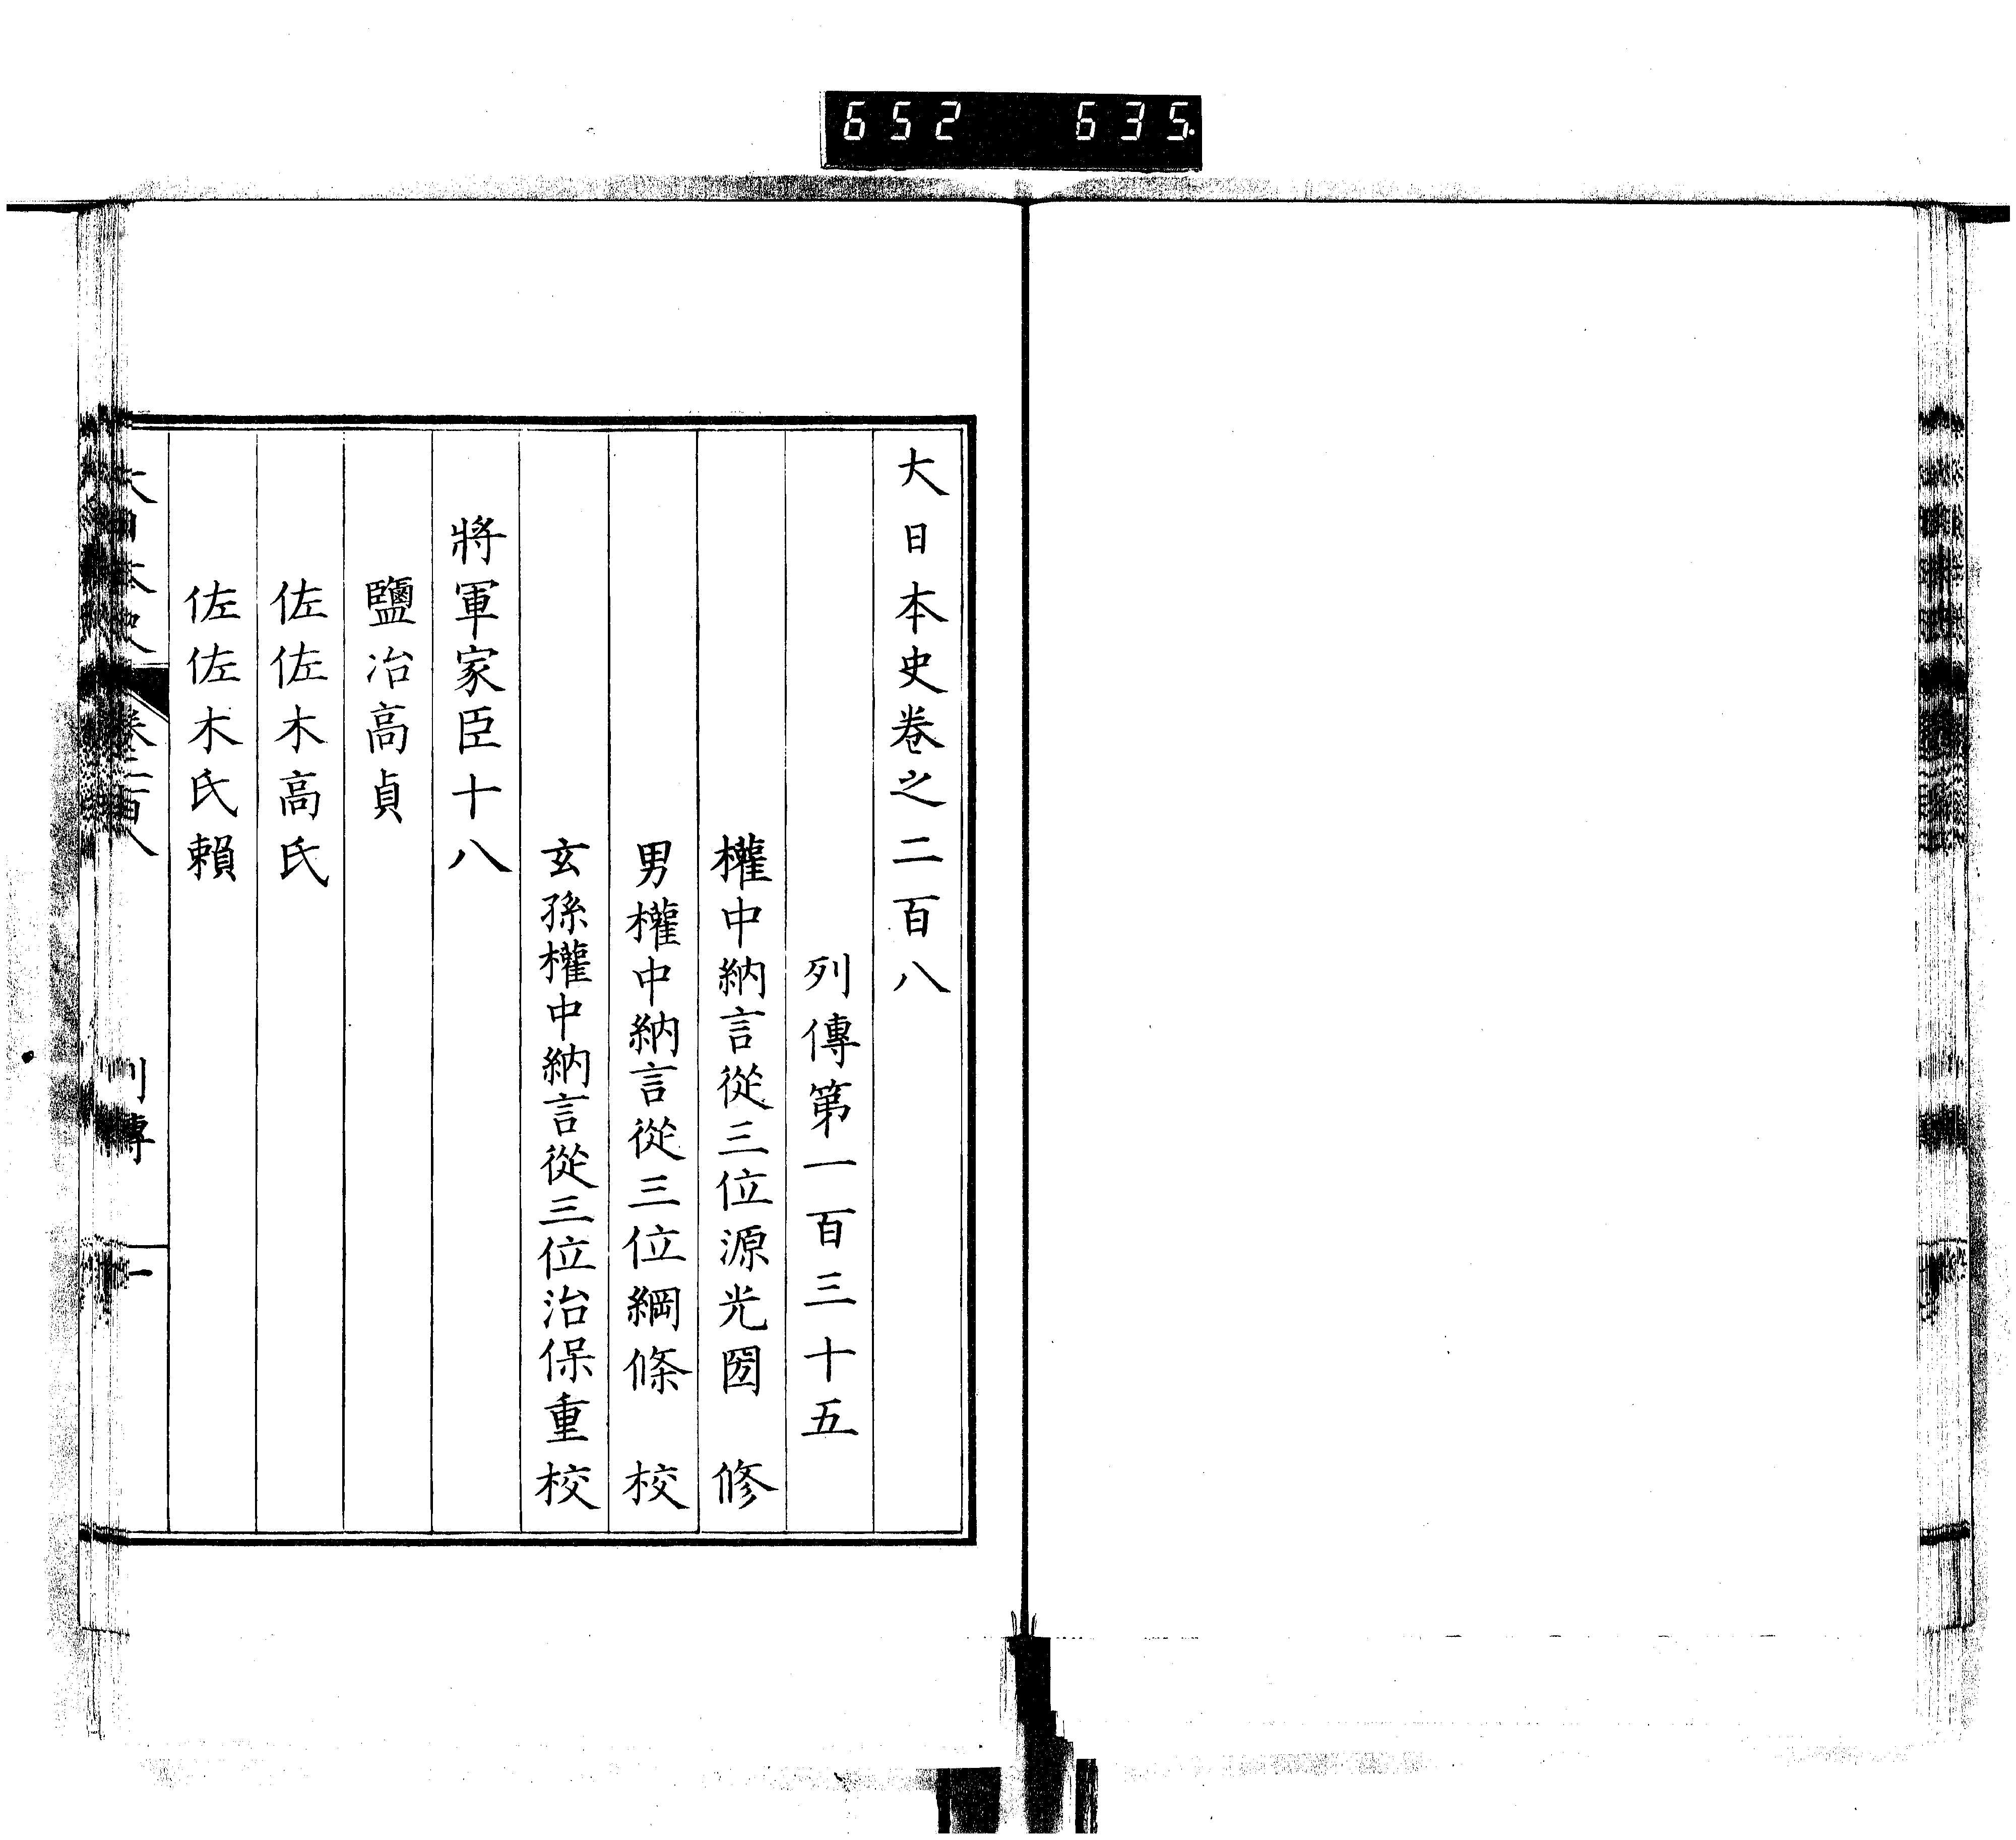 652 635.
大日本史卷之二百八
列傳第一百三十五
權中納言從三位源光圀 修
男權中納言從三位綱條 校
玄孫權中納言從三位治保重校
將軍家臣十八
鹽冶高貞
佐佐木高氏
佐佐木氏賴
大日本史 卷二百八 列傳 一